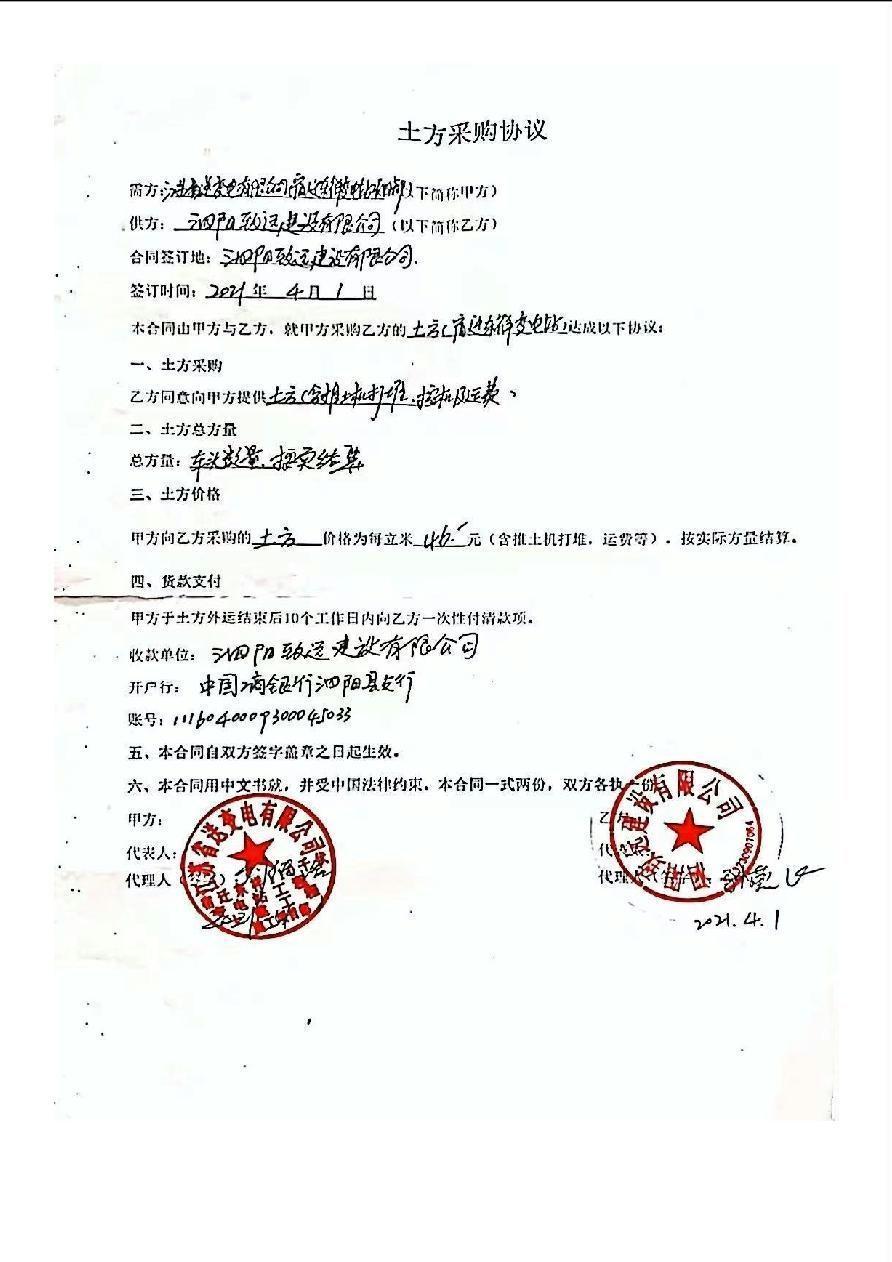 土方采购协议
需方：江苏省送变电有限公司宿迁东 （以下简称甲方）
供方：泗阳致远建设有限公司（以下简称乙方）
合同签订地：泗阳致远建设有限公司.
签订时间：2021年 4月1日
本合同由甲方与乙方，就甲方采购乙方的土方（宿迁东 变电站）达成以下协议：
一、土方采购
乙方同意向甲方提供土方（含推土机打堆、挖机及运费、
二、土方总方量
总方量：车次数量、按实结算
三、土方价格
甲方向乙方采购的土方 价格为每立米 46. 元（含推土机打堆，运费等），按实际方量结算。
四、货款支付
甲方于土方外运结束后10个工作日内向乙方一次性付清款项。
收款单位：泗阳致远建设有限公司
开户行：中国 银行泗阳县支行
账号：1116040009300045033
五、本合同自双方签字盖章之日起生效。
六、本合同用中文书就，并受中国法律约束，本合同一式两份，双方各执 份
甲方：
乙
代表人：
代
代理人
代理人
江苏省送变电有限公司
泗阳致远建设有限公司
2021.4.1